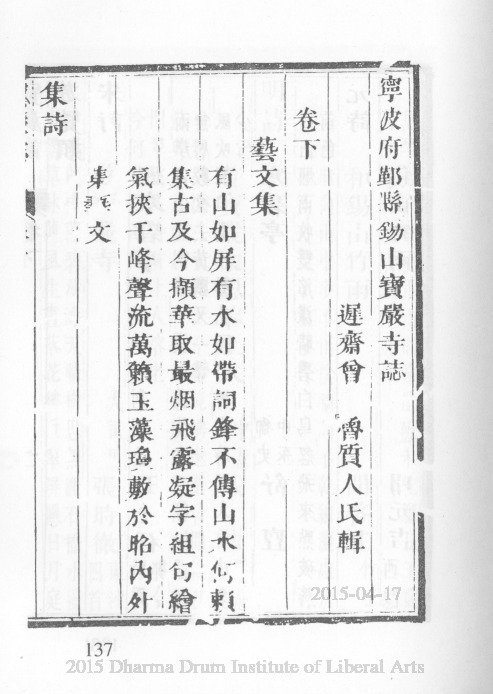 寧波府鄞縣鋤山寶嚴寺誌
遲齋曾 質人氏輯
卷下
藝文集
有山如屏有水如帶詞鋒不傳山水何賴
集古及今擷華取最烟飛露凝字組句繪
氣挾千峰聲流萬籟玉藻 敷於昭內外
文
集詩
137
2015-04-17
2015 Dharma Drum Institute of Liberal Arts